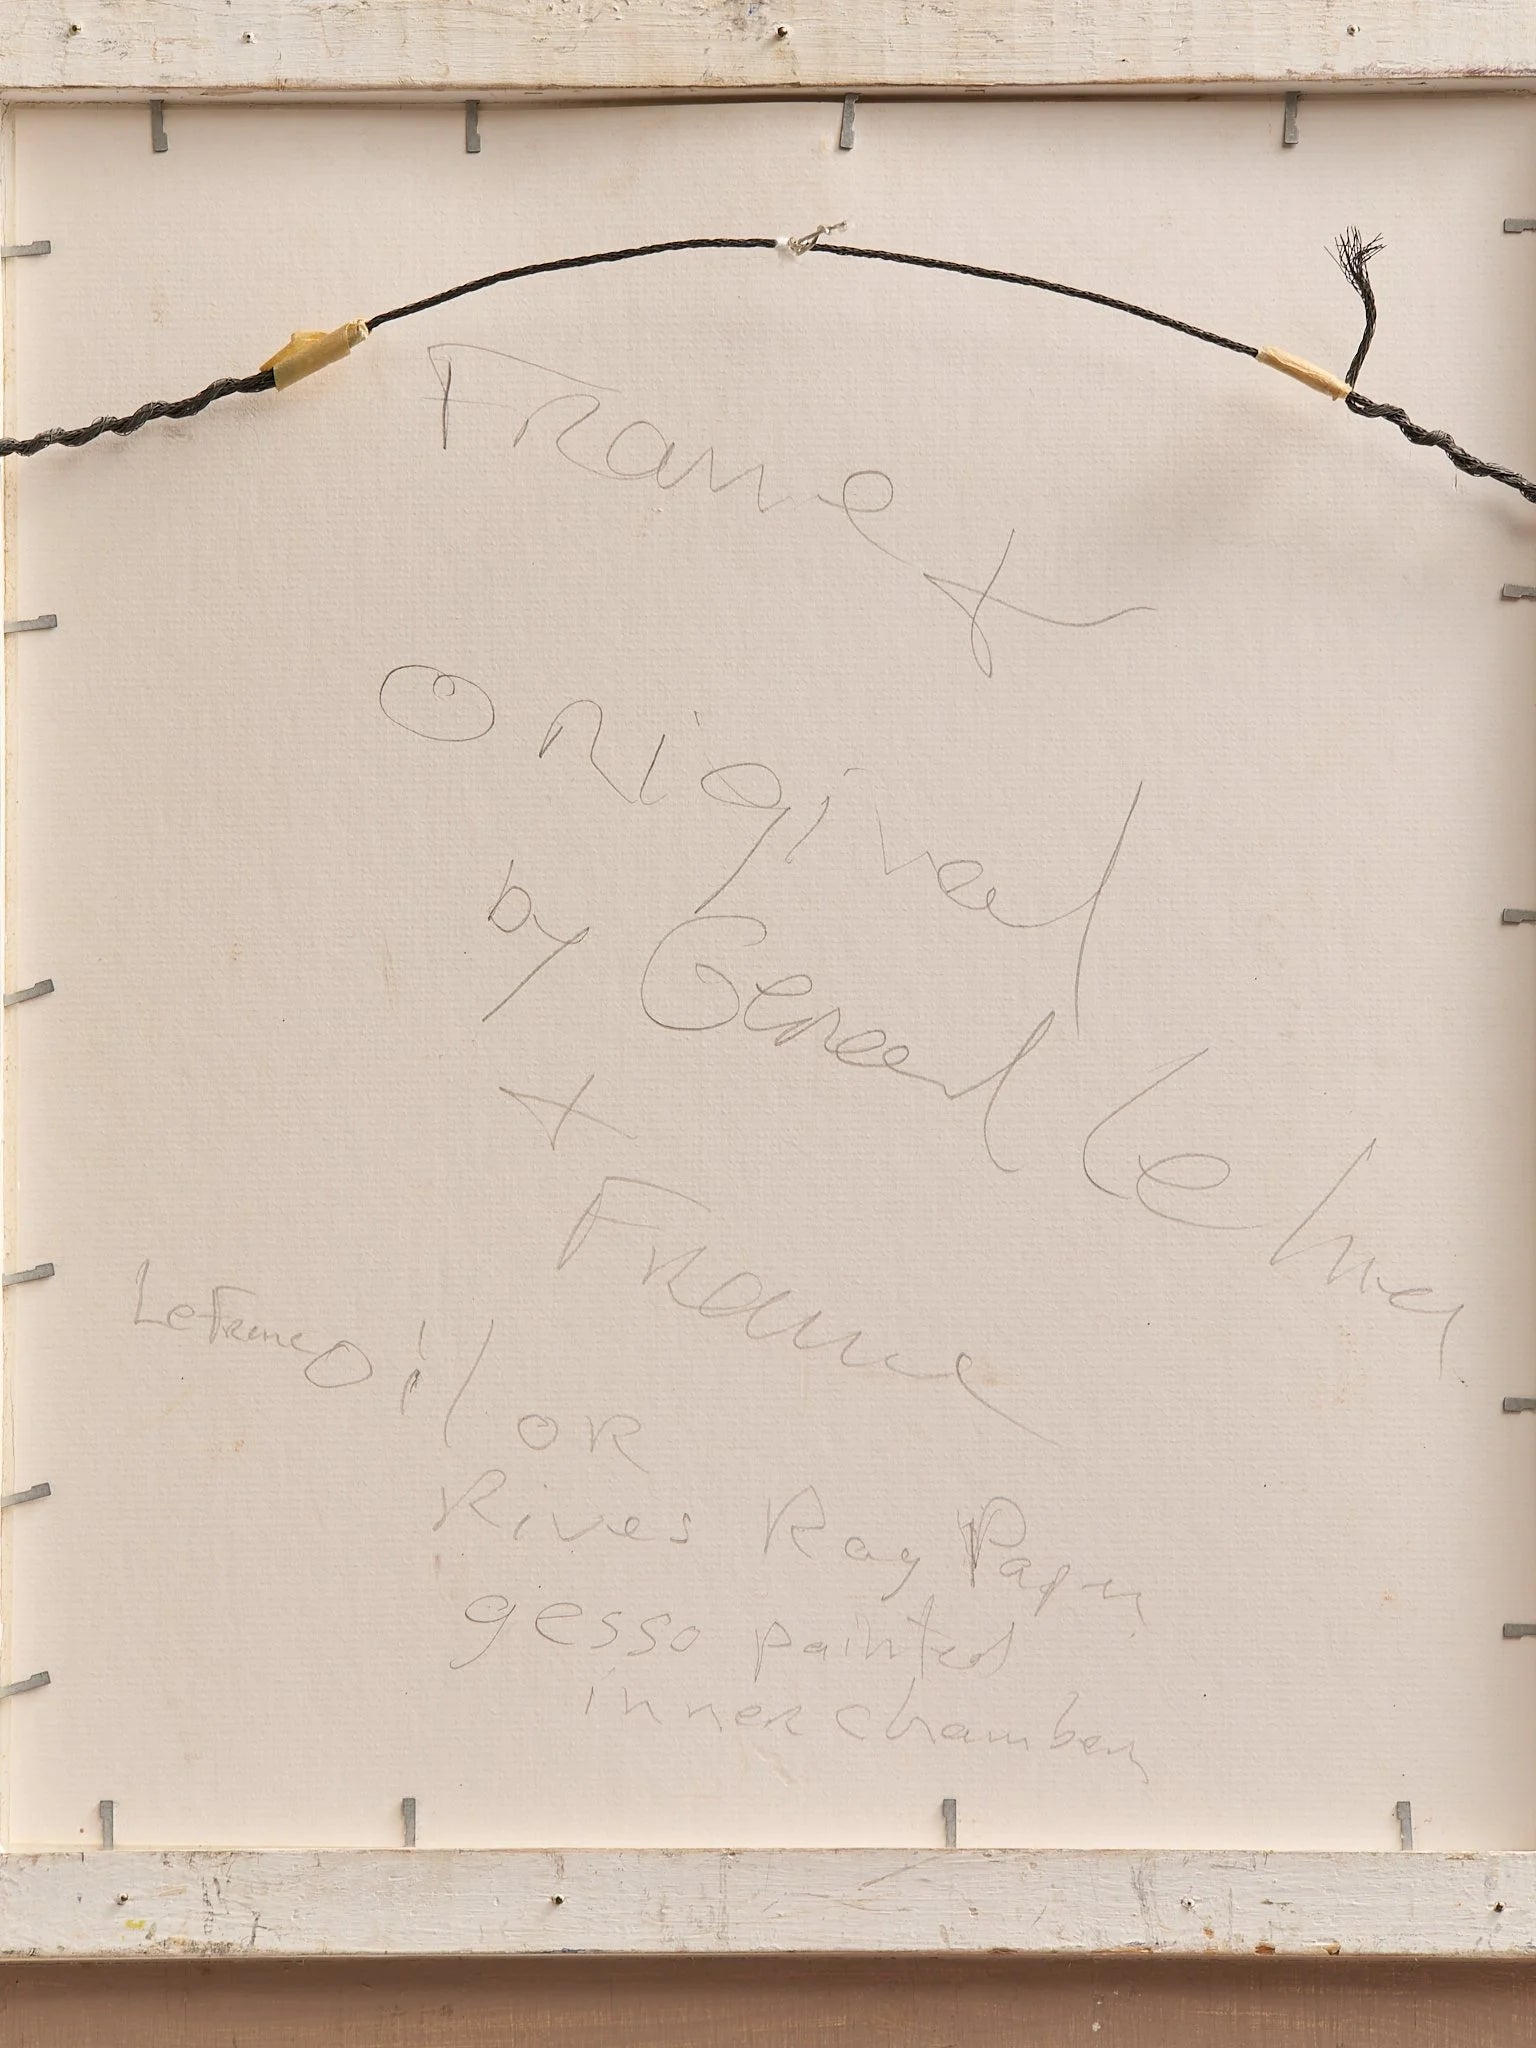 Frame +
Original
by Gerard Lehner
+
Frame
LeFranc Oil on
Rives Rag Paper
gesso painted
inner chamber